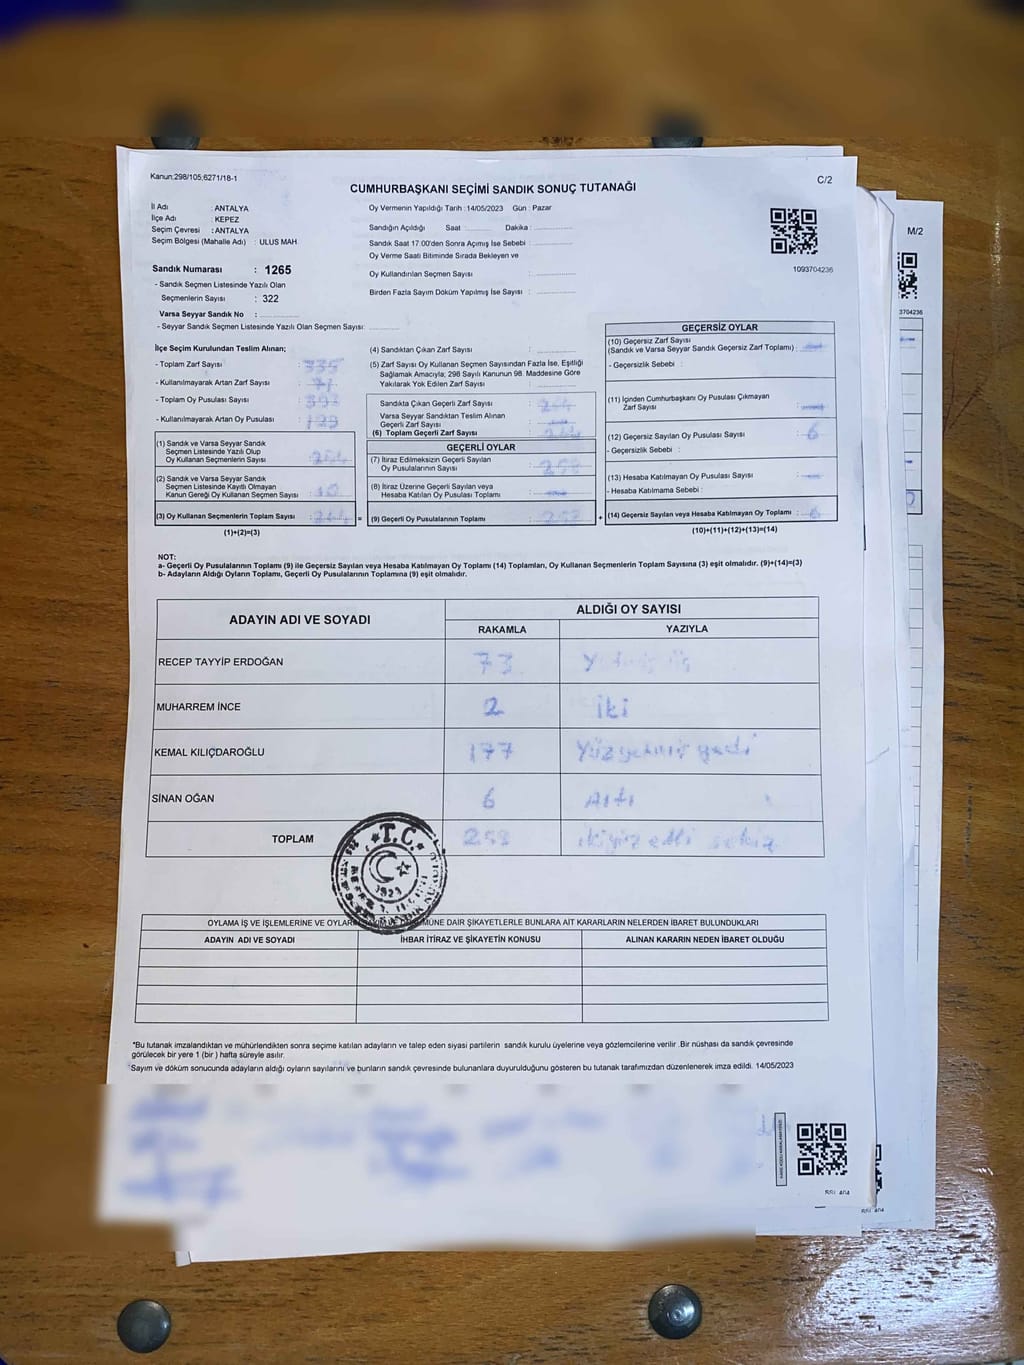 Kanun:298/105,6271/18-1
C/2
CUMHURBAŞKANI SEÇİMİ SANDIK SONUÇ TUTANAĞI
İl Adı : ANTALYA
İlçe Adı : KEPEZ
Seçim Çevresi : ANTALYA
Seçim Bölgesi (Mahalle Adı) : ULUS MAH
Sandık Numarası : 1265
- Sandık Seçmen Listesinde Yazılı Olan
Seçmenlerin Sayısı : 322
Varsa Seyyar Sandık No :
- Seyyar Sandık Seçmen Listesinde Yazılı Olan Seçmen Sayısı:
Oy Vermenin Yapıldığı Tarih :14/05/2023 Gün : Pazar
Sandığın Açıldığı Saat : Dakika :
Sandık Saat 17:00'den Sonra Açımış İse Sebebi :
Oy Verme Saati Bitiminde Sırada Bekleyen ve
Oy Kullandırılan Seçmen Sayısı :
Birden Fazla Sayım Döküm Yapılmış İse Sayısı :
1093704236
M/2
3704236
İlçe Seçim Kurulundan Teslim Alınan;
- Toplam Zarf Sayısı : 335
- Kullanılmayarak Artan Zarf Sayısı : 71
- Toplam Oy Pusulası Sayısı : 393
- Kullanılmayarak Artan Oy Pusulası : 129
(1) Sandık ve Varsa Seyyar Sandık
Seçmen Listesinde Yazılı Olup
Oy Kullanan Seçmenlerin Sayısı
(2) Sandık ve Varsa Seyyar Sandık
Seçmen Listesinde Kayıtlı Olmayan
Kanun Gereği Oy Kullanan Seçmen Sayısı : 10
(3) Oy Kullanan Seçmenlerin Toplam Sayısı : 264 =
(1)+(2)=(3)
(4) Sandıktan Çıkan Zarf Sayısı :
(5) Zarf Sayısı Oy Kullanan Seçmen Sayısından Fazla İse, Eşitliği
Sağlamak Amacıyla; 298 Sayılı Kanunun 98. Maddesine Göre
Yakılarak Yok Edilen Zarf Sayısı :
Sandıkta Çıkan Geçerli Zarf Sayısı : 264
Varsa Seyyar Sandıktan Teslim Alınan
Geçerli Zarf Sayısı : —
(6) Toplam Geçerli Zarf Sayısı : 264
GEÇERLİ OYLAR
(7) İtiraz Edilmeksizin Geçerli Sayılan
Oy Pusulalarının Sayısı : 258
(8) İtiraz Üzerine Geçerli Sayılan veya
Hesaba Katılan Oy Pusulası Toplamı : —
(9) Geçerli Oy Pusulalarının Toplamı : 258 +
GEÇERSİZ OYLAR
(10) Geçersiz Zarf Sayısı
(Sandık ve Varsa Seyyar Sandık Geçersiz Zarf Toplamı) : —
- Geçersizlik Sebebi :
(11) İçinden Cumhurbaşkanı Oy Pusulası Çıkmayan
Zarf Sayısı : —
(12) Geçersiz Sayılan Oy Pusulası Sayısı : 6
- Geçersizlik Sebebi :
(13) Hesaba Katılmayan Oy Pusulası Sayısı : —
- Hesaba Katılmama Sebebi :
(14) Geçersiz Sayılan veya Hesaba Katılmayan Oy Toplamı : 6
(10)+(11)+(12)+(13)=(14)
NOT:
a- Geçerli Oy Pusulalarının Toplamı (9) ile Geçersiz Sayılan veya Hesaba Katılmayan Oy Toplamı (14) Toplamları, Oy Kullanan Seçmenlerin Toplam Sayısına (3) eşit olmalıdır. (9)+(14)=(3)
b- Adayların Aldığı Oyların Toplamı, Geçerli Oy Pusulalarının Toplamına (9) eşit olmalıdır.
ADAYIN ADI VE SOYADI
ALDIĞI OY SAYISI
RAKAMLA YAZIYLA
RECEP TAYYİP ERDOĞAN 73
MUHARREM İNCE 2 iki
KEMAL KILIÇDAROĞLU 177 Yüzyetmiş yedi
SİNAN OĞAN 6 Altı
TOPLAM 258 ikiyüz elli sekiz
T.C.
OYLAMA İŞ VE İŞLEMLERİNE VE OYLARIN SAYIM VE DÖKÜMÜNE DAİR ŞİKAYETLERLE BUNLARA AİT KARARLARIN NELERDEN İBARET BULUNDUKLARI
ADAYIN ADI VE SOYADI İHBAR İTİRAZ VE ŞİKAYETİN KONUSU ALINAN KARARIN NEDEN İBARET OLDUĞU
*Bu tutanak imzalandıktan ve mühürlendikten sonra seçime katılan adayların ve talep eden siyasi partilerin sandık kurulu üyelerine veya gözlemcilerine verilir .Bir nüshası da sandık çevresinde
görülecek bir yere 1 (bir ) hafta süreyle asılır.
*Sayım ve döküm sonucunda adayların aldığı oyların sayılarını ve bunların sandık çevresinde bulunanlara duyurulduğunu gösteren bu tutanak tarafımızdan düzenlenerek imza edildi. 14/05/2023